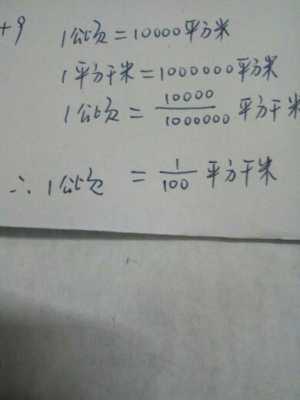 +9
1公顷=10000平方米
1平方千米=1000000平方米
1公顷=10000/1000000平方千米
∴1公顷=1/100平方千米